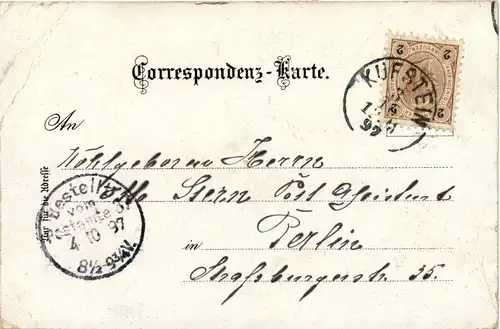 Correspondenz-Karte.
2 2
2 2
KUFSTEIN
97
An
Wohlgeboren Herrn
Otto Stern Post Assistent
in Berlin
Straßburgerstr. 35.
Nur für die Adresse
Bestellt
vom
Postamte
4 10 97
8½-9¾V.